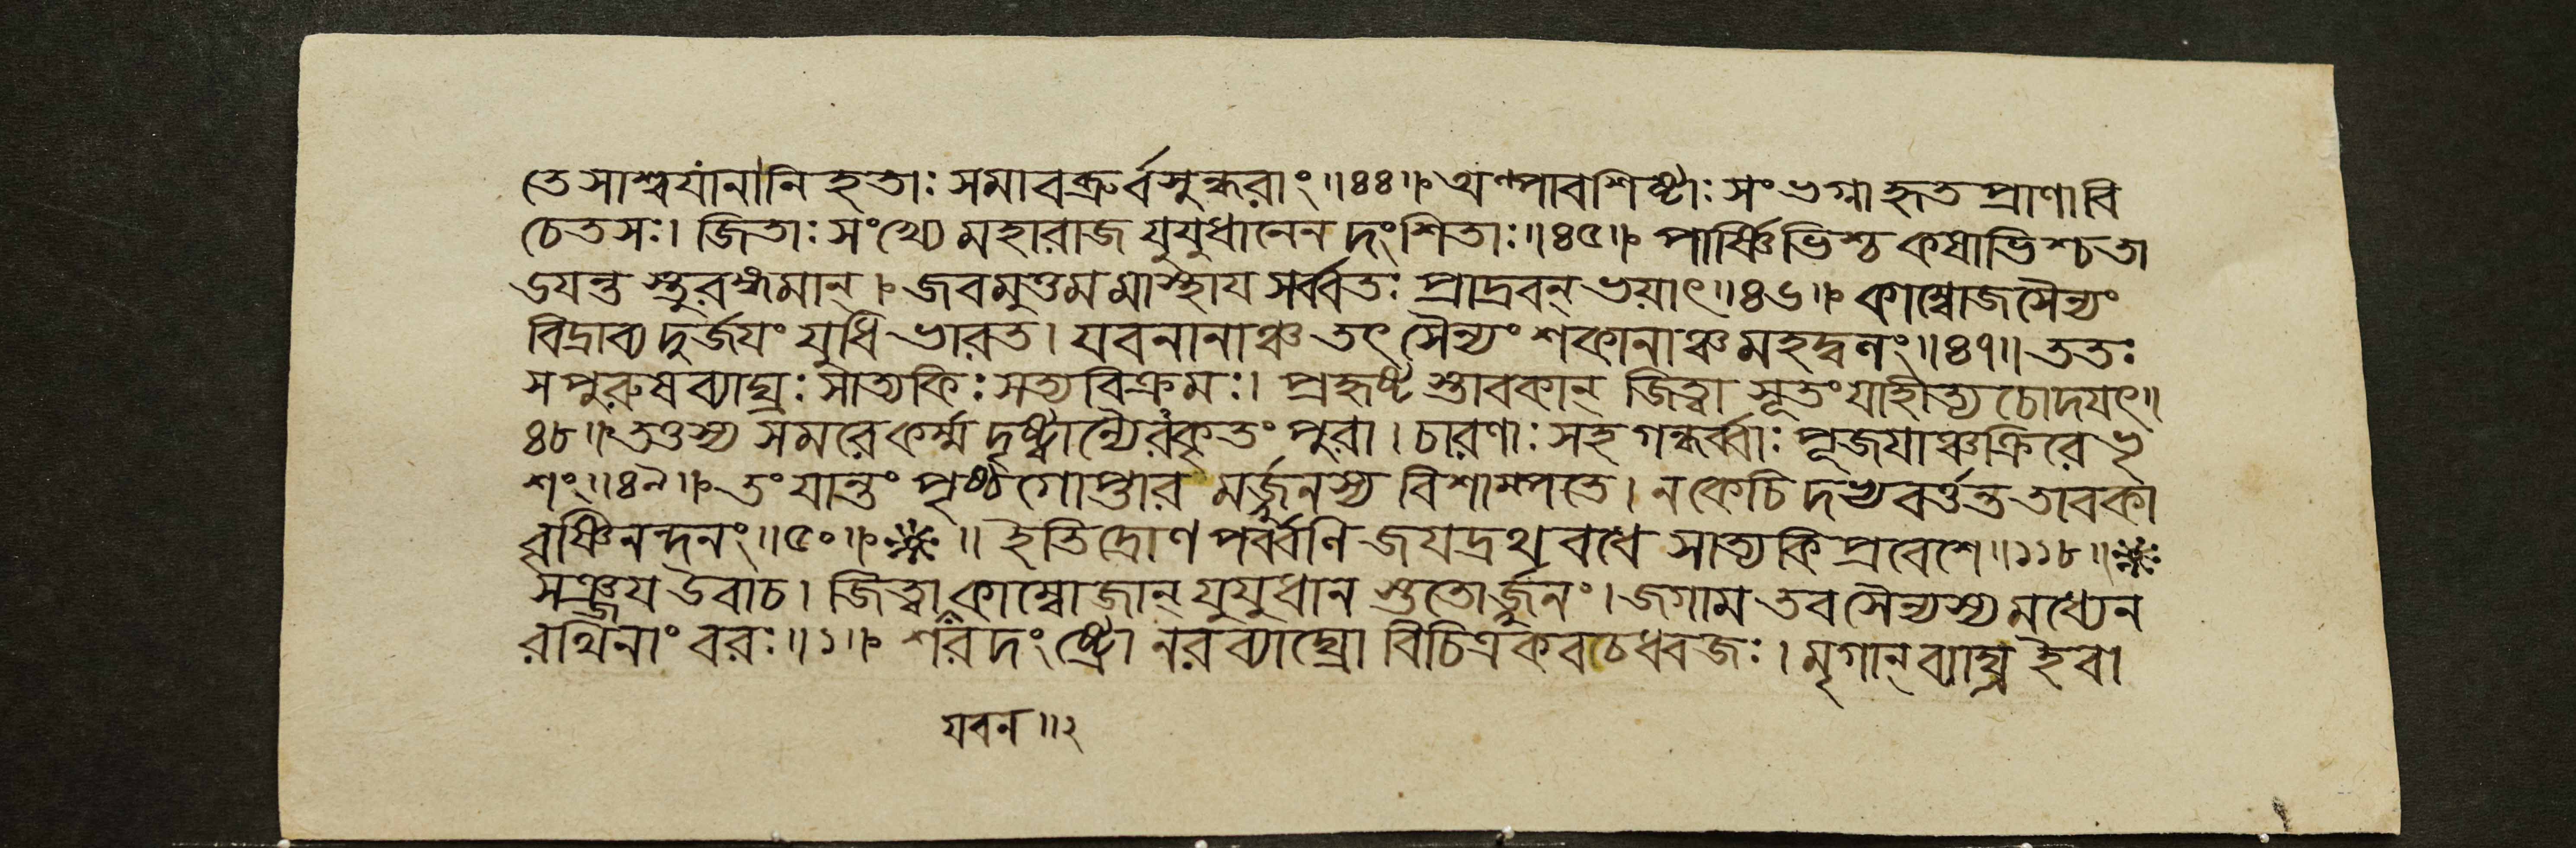 তে সাশ্বযানানি হতাঃ সমাবব্রুর্বসুন্ধরাং॥৪৪॥ অল্পাবশিষ্টাঃ সংভগ্না হৃত প্রাণা বি
চেতসঃ। জিতাঃ সংখ্যে মহারাজ যুযুধানেন দংশিতাঃ॥৪৫॥ পার্ষ্ণিভিশ্চ কষাভিশ্চ তা
ডযন্ত স্তুরঙ্গমান্। জবমুত্তম মাস্থায সর্ব্বতঃ প্রাদ্রবন্ ভয়াৎ॥৪৬॥ কাম্বোজসৈন্যং
বিদ্রাব্য দুর্জযং যুধি ভারত। যবনানাঞ্চ তৎ সৈন্যং শকানাঞ্চ মহদ্বলং॥৪৭॥ ততঃ
স পুরুষব্যাঘ্রঃ সাত্যকিঃ সত্যবিক্রমঃ। প্রহৃষ্ট স্তাবকান্ জিত্বা সূতং যাহীত্য চোদযৎ॥
৪৮॥ তত্তস্য সমরে কর্ম্ম দৃষ্ট্বান্যৈরকৃতং পুরা। চারণাঃ সহ গন্ধর্ব্বাঃ পূজযাঞ্চক্রিরে ভৃ
শং॥৪৯॥ তং যান্তং পৃষ্ঠগোপ্তার মর্জ্জুনস্য বিশাম্পতে। ন কেচি দভ্যবর্ত্তন্ত তাবকা
বৃষ্ণিনন্দনং॥৫০॥ ॥ ইতি দ্রোণ পর্ব্বণি জযদ্রথ বধে সাত্যকি প্রবেশে॥১১৮॥
সঞ্জয উবাচ। জিত্বা কাম্বোজান্ যুযুধান স্ততোর্জুনং। জগাম তব সৈন্যস্য মধ্যেন
রথিনাং বরঃ॥১॥ শরদংষ্ট্রো নরব্যাঘ্রো বিচিত্রকবচধ্বজঃ। মৃগান্ ব্যাঘ্র ইবা
যবন॥২